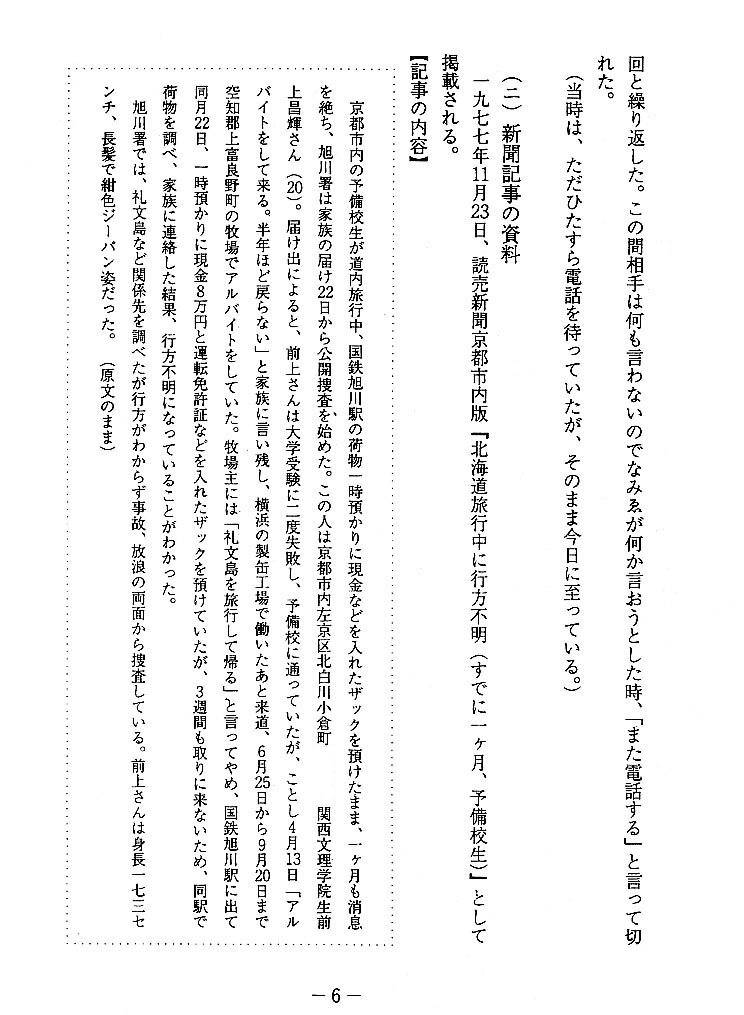 回と繰り返した。この間相手は何も言わないのでなみゑが何か言おうとした時、「また電話する」と言って切
れた。
（当時は、ただひたすら電話を待っていたが、そのまま今日に至っている。）
（二）新聞記事の資料
一九七七年11月23日、読売新聞京都市内版『北海道旅行中に行方不明（すでに一ヶ月、予備校生）』として
掲載される。
【記事の内容】
京都市内の予備校生が道内旅行中、国鉄旭川駅の荷物一時預かりに現金などを入れたザックを預けたまま、一ヶ月も消息
を絶ち、旭川署は家族の届け22日から公開捜査を始めた。この人は京都市内左京区北白川小倉町　関西文理学院生前
上昌輝さん（20）。届け出によると、前上さんは大学受験に二度失敗し、予備校に通っていたが、ことし4月13日「アル
バイトをして来る。半年ほど戻らない」と家族に言い残し、横浜の製缶工場で働いたあと来道、6月25日から9月20日まで
空知郡上富良野町の牧場でアルバイトをしていた。牧場主には「礼文島を旅行して帰る」と言ってやめ、国鉄旭川駅に出て
同月22日、一時預かりに現金8万円と運転免許証などを入れたザックを預けていたが、3週間も取りに来ないため、同駅で
荷物を調べ、家族に連絡した結果、行方不明になっていることがわかった。
旭川署では、礼文島など関係先を調べたが行方がわからず事故、放浪の両面から捜査している。前上さんは身長一七三セ
ンチ、長髪で紺色ジーパン姿だった。（原文のまま）
－6－